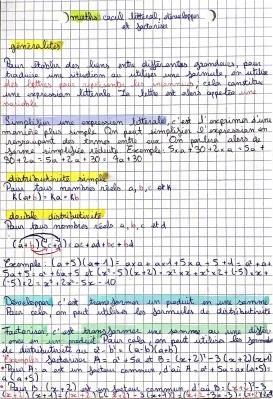 ) maths cacul littéral, développer )
et factoriser
généralités
Pour établir des liens entre différentes grandeurs, pour
traduire une situation ou utiliser une formule, on utilise
des lettres pour représenter les inconnus, cela constitue
une expression littérale. La lettre est alors appelée une
variable
Simplifier une expression littérale, c'est l'exprimer d'une
manière plus simple. On peut simplifier l'expression en
regroupant des termes entre eux. On parlera alors de
forme simplifiée réduite. Exemple: 5xa + 30 + 2xa = 5a +
30 + 2a = 5a + 2a + 30 = 7a + 30
distributivité simple
Pour tous nombres réels a, b, c et k
K(a+b) = Ka + Kb
double distributivité
Pour tous nombres réels a, b, c et d
(a+b)(c+d) = ac + ad + bc + bd
Exemple: (a+5)(a+1) = axa + ax1 + 5xa + 5+1 = a² + a +
5a + 5 = a² + 6a + 5 et (x²-5)(x+2) = x²xx + x²x2 + (-5)xx +
(-5)x2 = x³ + 2x² - 5x - 10
Développer, c'est transformer un produit en une somme
Pour cela, on peut utiliser les formules de distributivité
Factoriser, c'est transformer une somme ou une différ-
ence en un produit. Pour cela, on peut utiliser les formules
de distributivité ou a² - b² = (a-b)(a+b)
factoriser A = a² + 5a et B = (x+2)² - 3(x+2)(x+1)
Pour A: a est un facteur commun, d'où A = a² + 5a = a(a+5)
Pour B: (x+2) est un facteur commun, d'où B = (x+2)² - 3